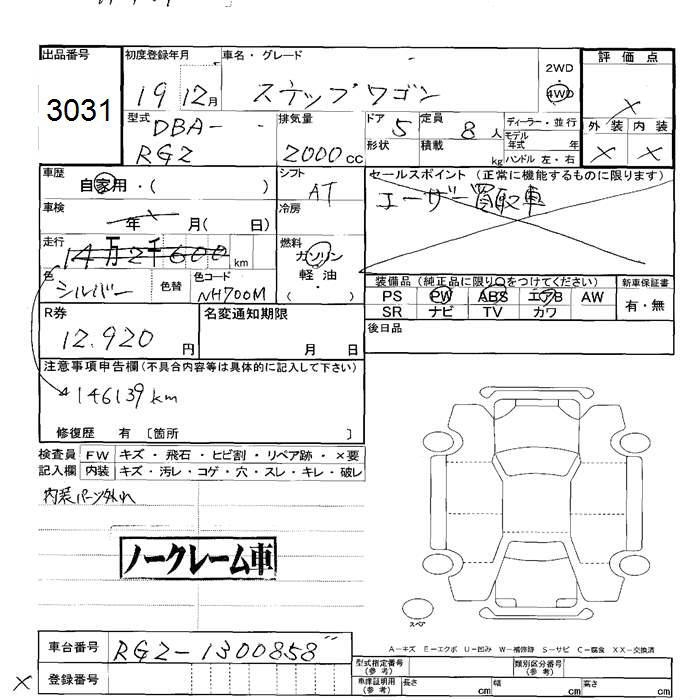 出品番号 初度登録年月 車名・グレード 評価点
3031 19 12月 ステップワゴン 2WD 4WD ×
型式 排気量 ドア 定員 ディーラー・並行 外装 内装
DBA- 2000cc 5 8人 モデル年式 年 × ×
RG2 形状 積載 kg ハンドル 左・右
車歴 シフト セールスポイント (正常に機能するものに限ります)
自家用・( ) AT ユーザー買取車
車検 冷房
年 × 月( 日)
走行 燃料
14万2千600km ガソリン
色 色替 色コード 軽油・ 装備品(純正品に限り○をつけてください) 新車保証書
シルバー NH700M ( ) PS PW ABS エアB AW 有・無
R券 名変通知期限 SR ナビ TV カワ
12.920円 月 日 後日品
注意事項申告欄(不具合内容等は具体的に記入して下さい)
146139km
修復歴 有 〔箇所 〕
検査員 FW キズ・飛石・ヒビ割・リペア跡・×要
記入欄 内装 キズ・汚レ・コゲ・穴・スレ・キレ・破レ
内装パーツ外れ
ノークレーム車
スペア
A－キズ E－エクボ U－凹み W－補修跡 S－サビ C－腐食 XX－交換済
車台番号 RG2-1300858
型式指定番号(参考) 類別区分番号(参考)
× 登録番号 車庫証明用(参考) 長さ cm 幅 cm 高さ cm